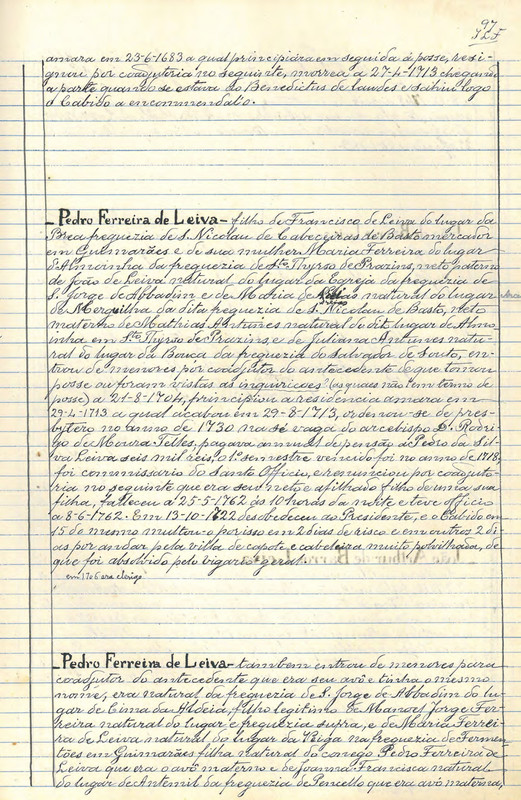 97
amara em 23-6-1683 a qual principiára em seguida á posse, resi-
gnou por coadjutoria no seguinte, morreu a 27-4-1713 chegando
a parte quando se estava do Benedictus de laudes e sahiu logo
o Cabido a encommendal'o.
- Pedro Ferreira de Leiva - filho de Francisco de Leiva do lugar da
Brea freguezia de S. Nicolau de Cabeceiras de Basto mercador
em Guimarães e de sua mulher Maria Ferreira do lugar
d'Almoinha da freguezia de Sto Thyrso de Prazins, neto paterno
de João de Leiva natural do lugar da Egreja da freguezia de
S. Jorge de Abbadim e de Maria de natural do lugar
de Mergilha da dita freguezia de S. Nicolau de Basto, neto
materno de Mathias Antunes natural do dito lugar de Almo-
inha em Sto Thyrso de Prazins, e de Juliana Antunes natu-
ral do lugar da Bouça da freguezia do Salvador de Souto, en-
trou de menores por coadjutor do antecedente de que tomou
posse ou foram vistas as inquirições (as quaes não tem termo de
posse) a 21-8-1704, principiou a residencia amara em
29-4-1713 a qual acabou em 29-8-1713, ordenou-se de pres-
bytero no anno de 1730 na sé vaga do arcebispo D. Rodri-
go de Moura Telles, pagava annual de pensão a Pedro da Sil-
va Leiva seis mil réis, o 1º semestre vencido foi no anno de 1718,
foi commissario do Santo Officio, e renunciou por coadjuto-
ria no seguinte que era seu neto e afilhado filho de uma sua
filha, falleceu a 25-5-1762 ás 10 horas da noite e teve officio
a 8-6-1762. Em 13-10-1722 desobedeceu ao Presidente, e o Cabido em
15 do mesmo multou-o por isso em 2 dias de risco e em outros 2 di-
as por andar pela villa de capote e cabeleira muito polvilhada, de
que foi absolvido pelo vigario geral.
em 1706 era clerigo
- Pedro Ferreira de Leiva - tambem entrou de menores para
coadjutor do antecedente que era seu avô e tinha o mesmo
nome, era natural da freguezia de S. Jorge de Abbadim do lu-
gar de Cima da Aldeia, filho legitimo de Manoel Jorge Fer-
reira natural do lugar e freguezia supra, e de Maria Ferrei-
ra de Leiva natural do lugar da Veiga na freguezia de Fermen-
tões em Guimarães filha natural do conego Pedro Ferreira de
Leiva que era o avô materno e de Joanna Francisca natural
do lugar de Antemil da freguezia de Pencello que era avó materna,